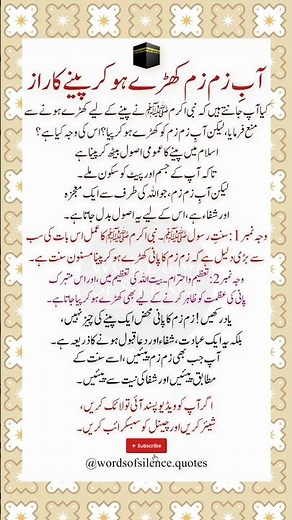 آبِ زم زم کھڑے ہو کر پینے کا راز
کیا آپ جانتے ہیں کہ نبی اکرم ﷺ نے پینے کے لیے کھڑے ہونے سے
منع فرمایا، لیکن آبِ زم زم کو کھڑے ہو کر پیا؟ اس کی وجہ کیا ہے؟
اسلام میں پینے کا عمومی اصول بیٹھ کر پینا ہے
تاکہ آپ کے جسم اور پیٹ کو سکون ملے۔
لیکن آبِ زم زم، جو اللہ کی طرف سے ایک معجزہ
اور شفاء ہے، اس کے لیے یہ اصول بدل جاتا ہے۔
وجہ نمبر 1: سنتِ رسول ﷺ۔ نبی اکرم ﷺ کا عمل اس بات کی سب
سے بڑی دلیل ہے کہ زم زم کا پانی کھڑے ہو کر پینا مسنون سنت ہے۔
وجہ نمبر 2: تعظیم و احترام۔ بیت اللہ کی تعظیم میں، اور اس متبرک
پانی کی عظمت کو ظاہر کرنے کے لیے بھی کھڑے ہو کر پیا جاتا ہے۔
یاد رکھیں! زم زم کا پانی محض ایک پینے کی چیز نہیں،
بلکہ یہ ایک عبادت، شفاء اور دعا قبول ہونے کا ذریعہ ہے۔
آپ جب بھی زم زم پیئیں، اسے سنت کے
مطابق پیئیں اور شفا کی نیت سے پیئیں۔
اگر آپ کو ویڈیو پسند آئی تو لائک کریں،
شیئر کریں اور چینل کو سبسکرائب کریں۔
+ Subscribe
@wordsofsilence.quotes